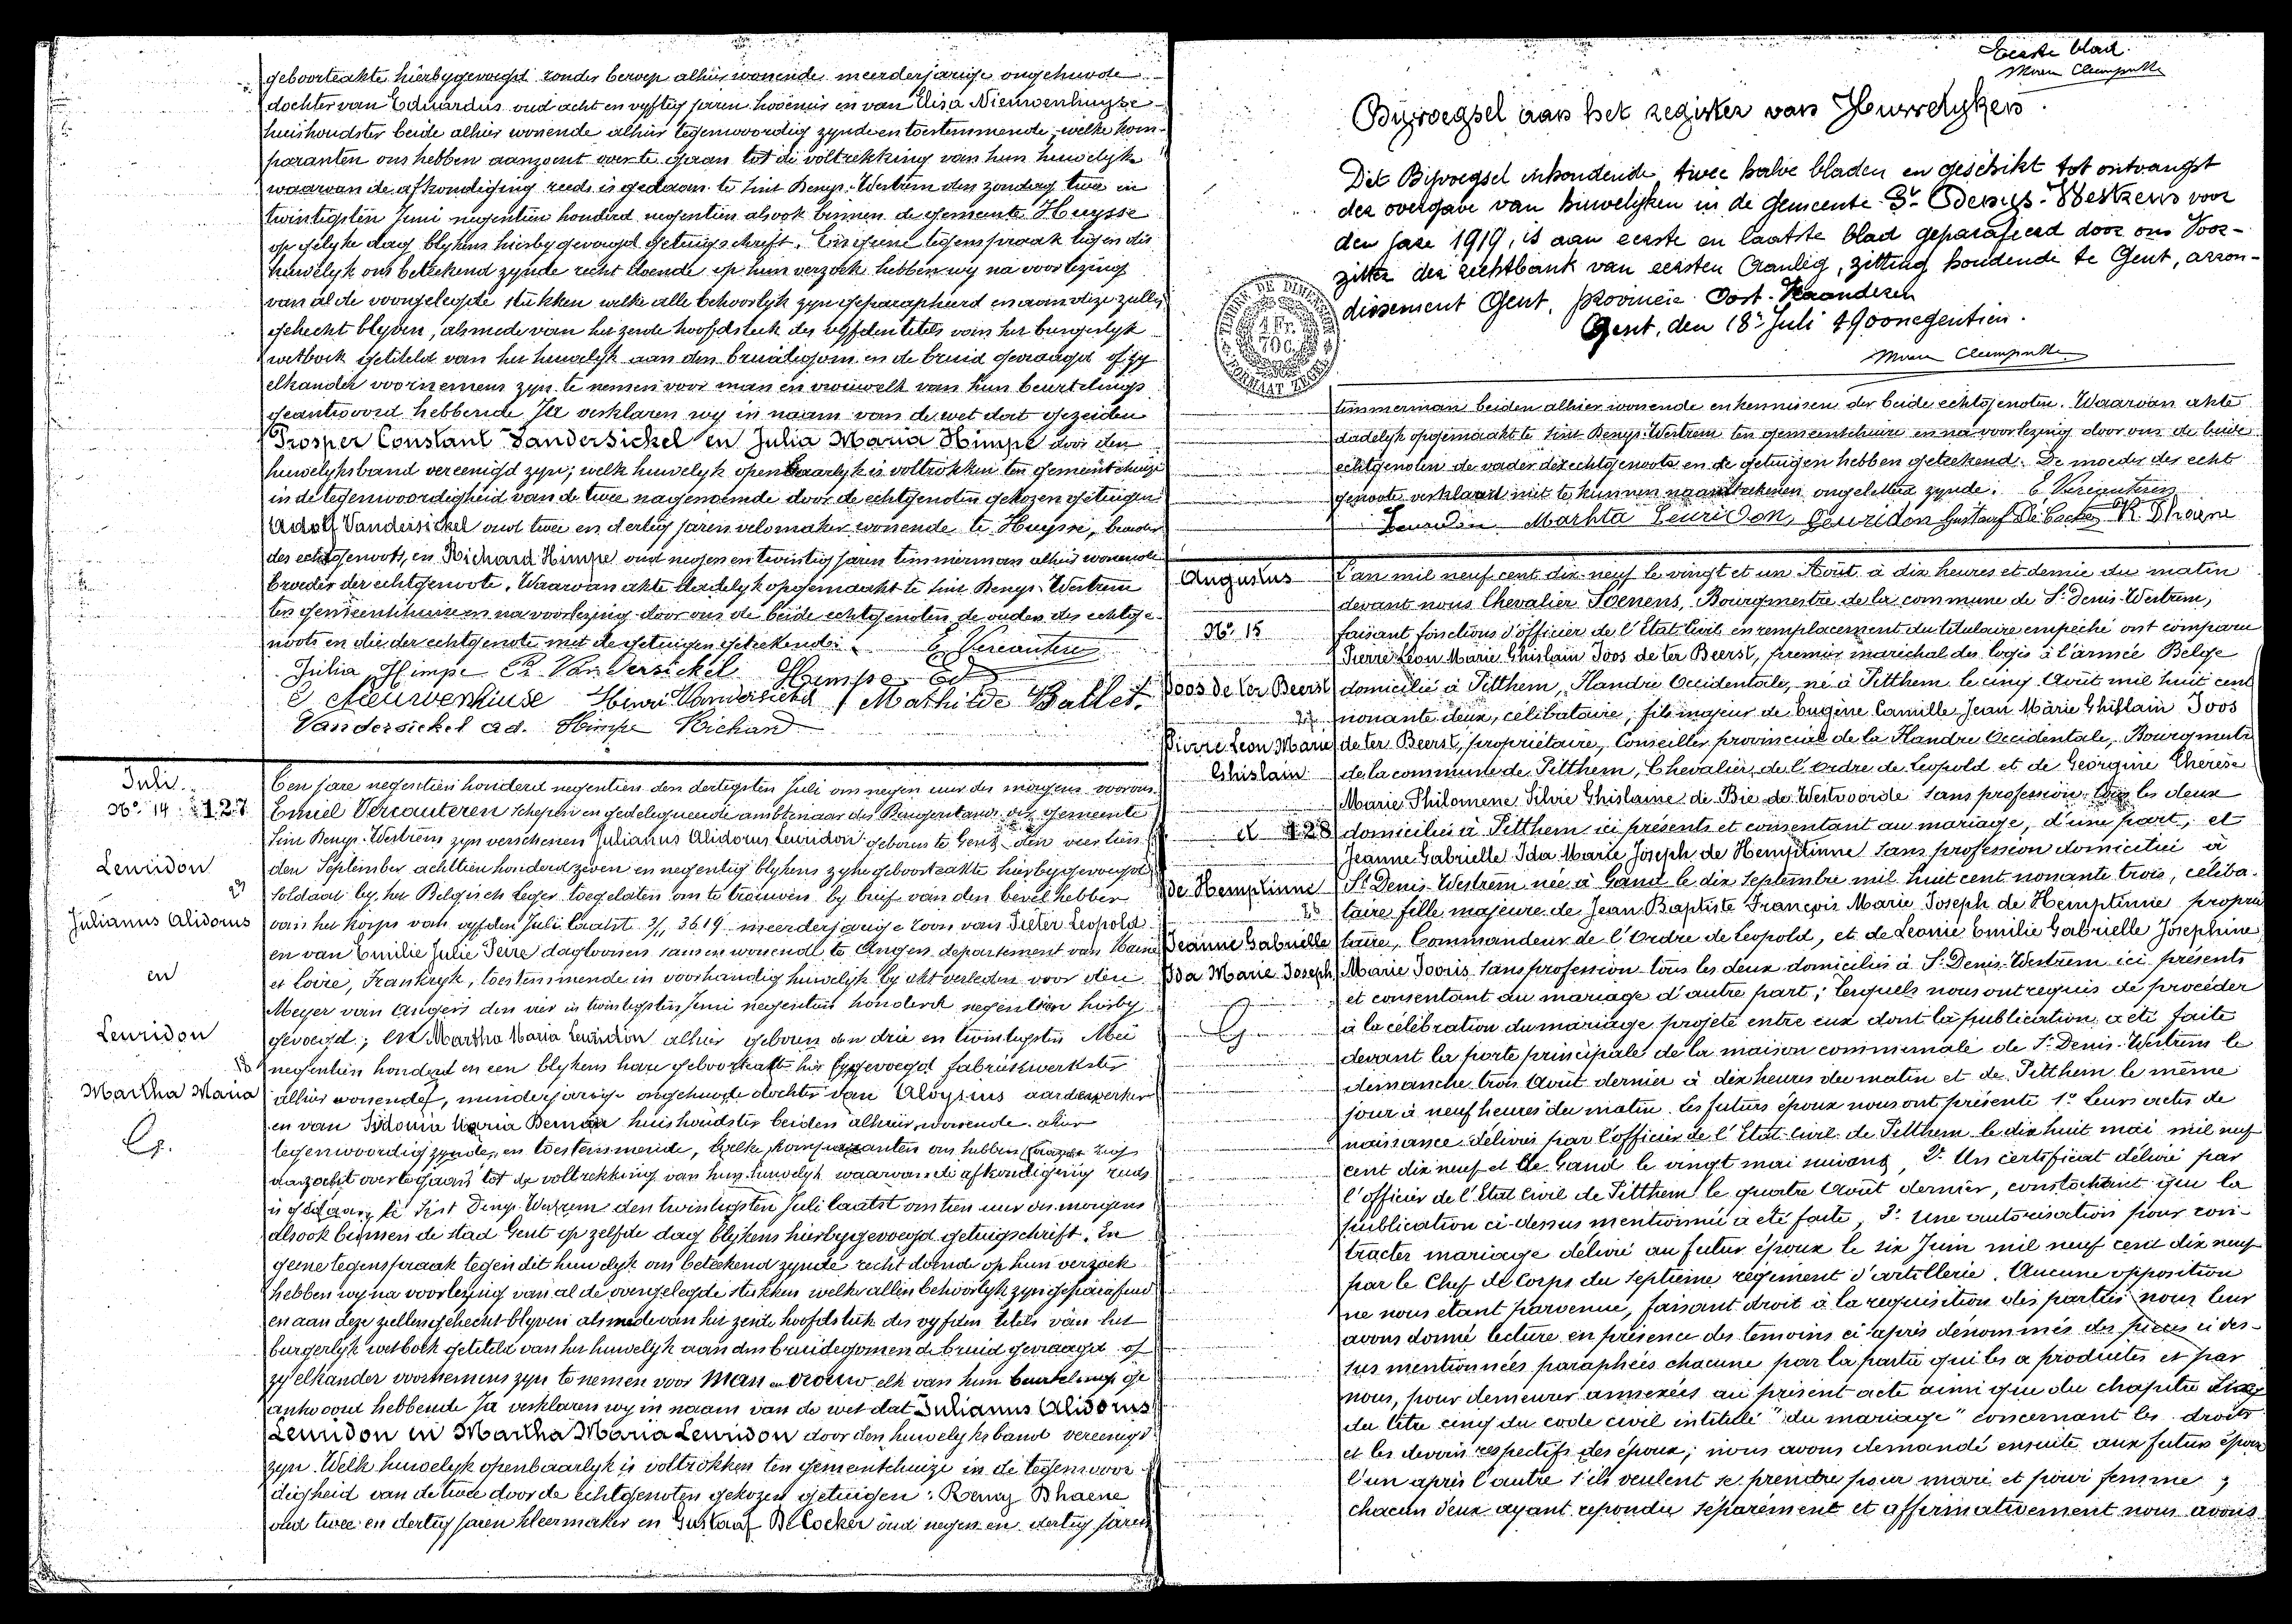 geboorteakte hierbygevoegd zonder beroep alhier wonende meerderjarige ongehuwde
dochter van Eduardus oud acht en vyftig jaren hovenier en van Elisa Nieuwenhuyse
huishoudster beide alhier wonende alhier tegenwoordig zynde en toestemmende, welke kom-
paranten ons hebben aanzocht over te gaan tot de voltrekking van hun huwelijk
waarvan de afkondiging reeds is gedaan te Sint Denys-Westrem den zondag twee en
twintigsten Juni negentien honderd negentien alsook binnen de gemeente Huysse
op gelyke dag blykens hierby gevoegd getuigschrift. En geene tegenspraak tegen dit
huwelyk ons beteekend zynde recht doende op hun verzoek hebben wy na voorlezing
van al de voorgelegde stukken welke alle behoorlyk zyn geparapheerd en aan deze zullen
gehecht blyven, alsmede van het zesde hoofdstuk des vyfden titels van het burgerlyk
wetboek getiteld van het huwelyk aan den bruidegom en de bruid gevraagd of zy
elkander voornemens zyn te nemen voor man en vrouw elk van hun beurtelings
geantwoord hebbende Ja verklaren wy in naam van de wet dat gezeiden
Prosper Constant Vandersickel en Julia Maria Himpe door den
huwelyksband vereenigd zyn; welk huwelyk openbaarlyk is voltrokken ten gemeentehuize
in de tegenwoordigheid van de twee nagenoemde door de echtgenoten gekozen getuigen
Adolf Vandersickel oud twee en dertig jaren velomaker wonende te Huysse, broeder
des echtgenoots, en Richard Himpe oud negen en twintig jaren timmerman alhier wonende
broeder der echtgenoote. Waarvan akte dadelyk opgemaakt te Sint Denys-Westrem
ten gemeentehuize en na voorlezing door ons de beide echtgenoten de ouders des echtge-
noots en die der echtgenote met de getuigen geteekend.
E. Vercauteren
Julia Himpe P. Vandersickel Himpe Ed
E Nieuwenhuise Henri Vandersickel Mathilde Ballet.
Vandersickel Ad. Himpe Richard
Juli
No. 14 127
Leuridon
23
Julianus Alidorus
en
Leuridon
18
Martha Maria
G.
Ten jare negentien honderd negentien den dertigsten Juli om negen uur des morgens voor ons
Emiel Vercauteren schepen en gedelegueerde ambtenaar des Burgerstands der gemeente
Sint Denys-Westrem zyn verschenen Julianus Alidorus Leuridon geboren te Gent den veertien
den September achttien honderd zeven en negentig blykens zyne geboorteakte hierbygevoegd
soldaat by het Belgisch leger toegelaten om te trouwen by brief van den bevelhebber
van het korps van vyfden Juli laatst 3619 meerderjarige zoon van Pieter Leopold
en van Emilie Julie Peire dagloonen samen wonende te Angers departement van Maine
et Loire, Frankryk, toestemmende in voorhandig huwelyk by akt verleden voor den
Meyer van Angers den vier en twintigsten Juni negentien honderd negentien hierby
gevoegd; en Martha Maria Leuridon alhier geboren den drie en twintigsten Mei
negentien honderd en een blykens hare geboorteakte hier bygevoegd fabriekwerkster
alhier wonende, minderjarige ongehuwde dochter van Aloysius aardewerker
en van Sidonia Maria Beman huishoudster beiden alhier wonende alhier
tegenwoordig zynde en toestemmende, welke komparanten ons hebben
aanzocht over te gaan tot de voltrekking van hun huwelyk waarvan de afkondiging reeds
is gedaan te Sint Denys-Westrem den twintigsten Juli laatst om tien uur des morgens
alsook binnen de stad Gent op zelfde dag blykens hierbygevoegd getuigschrift. En
geene tegenspraak tegen dit huwelyk ons beteekend zynde recht doende op hun verzoek
hebben wy na voorlezing van al de voorgelegde stukken welke allen behoorlyk zyn geparafeerd
en aan deze zullen gehecht blyven alsmede van het zesde hoofdstuk des vyfden titels van het
burgerlyk wetboek getiteld van het huwelyk aan den bruidegom en de bruid gevraagd of
zy elkander voornemens zyn te nemen voor man en vrouw elk van hun beurtelings ge
antwoord hebbende Ja verklaren wy in naam van de wet dat Julianus Alidorus
Leuridon en Martha Maria Leuridon door den huwelyksband vereenigd
zyn. Welk huwelyk openbaarlyk is voltrokken ten gemeentehuize in de tegenwoor
digheid van de twee door de echtgenoten gekozen getuigen: Remy Dhaene
oud twee en dertig jaren kleermaker en Gustaaf De Cocker oud negen en dertig jaren
Eerste blad.
Byvoegsel aan het register van Huwelyken.
Dit Bijvoegsel inhoudende twee halve bladen en geschikt tot ontvangst
der overgave van huwelyken in de Gemeente St Denys-Westrem voor
den jare 1919, is aan eerste en laatste blad geparafeerd door ons Voor-
zitter der rechtbank van eersten Aanleg, zitting houdende te Gent, arron-
dissement Gent, provincie Oost-Vlaanderen
Gent, den 18n Juli 1900negentien.
TIMBRE DE DIMENSION
1 Fr.
70 C.
FORMAAT ZEGEL
timmerman beiden alhier wonende en kennissen der beide echtgenoten. Waarvan akte
dadelyk opgemaakt te Sint Denys-Westrem ten gemeentehuize en na voorlezing door ons de beide
echtgenoten de vader der echtgenoote en de getuigen hebben geteekend. De moeder der echt
genoote verklaard niet te kunnen naamteekenen ongeletterd zynde. E. Vercauteren
Leuridon Marhta Leuridon, Leuridon Gustaaf De Cocker R. Dhaene
Augustus
No. 15
Joos de ter Beerst
27
Pierre Leon Marie
Ghislain
et 128
de Hemptinne
26
Jeanne Gabrielle
Ida Marie Joseph
G
L'an mil neuf cent dix-neuf le vingt et un Août à dix heures et demie du matin
devant nous Chevalier Soenens, Bourgmestre de la commune de St Denis-Westrem,
faisant fonctions d'officier de l'Etat Civil en remplacement du titulaire empêché ont comparu
Pierre Léon Marie Ghislain Joos de ter Beerst, premier maréchal des logis à l'armée Belge
domicilié à Pitthem, Flandre Occidentale, né à Pitthem le cinq Août mil huit cent
nonante deux, célibataire, fils majeur de Eugène Camille Jean Marie Ghislain Joos
de ter Beerst, propriétaire, Conseiller provincial de la Flandre Occidentale, Bourgmestre
de la commune de Pitthem, Chevalier de l'ordre de Léopold et de Georgine Thérèse
Marie Philomene Silvie Ghislaine de Bie de Westvoorde sans profession tous les deux
domiciliés à Pitthem ici présents et consentant au mariage, d'une part, et
Jeanne Gabrielle Ida Marie Joseph de Hemptinne sans profession domiciliée à
St Denis-Westrem née à Gand le dix Septembre mil huit cent nonante trois, céliba-
taire fille majeure de Jean Baptiste François Marie Joseph de Hemptinne proprié
taire, Commandeur de l'Ordre de Leopold, et de Leonie Emilie Gabrielle Josephine
Marie Jooris sans profession tous les deux domiciliés à St Denis-Westrem ici présents
et consentant au mariage d'autre part; lesquels nous ont requis de procéder
à la célébration du mariage projeté entre eux dont la publication a été faite
devant la porte principale de la maison communale de St Denis-Westrem le
dimanche trois Août dernier à dix heures du matin et de Pitthem le même
jour à neuf heures du matin. Les futurs époux nous ont présenté 1o Leurs actes de
naissance délivrés par l'officier de l'Etat Civil de Pitthem le dix huit mai mil neuf
cent dix neuf et de Gand le vingt mai suivant, 2o Un certificat délivré par
l'officier de l'Etat Civil de Pitthem le quatre Août dernier, constatant que la
publication ci-dessus mentionnée a été faite, 3o Une autorisation pour con-
tracter mariage délivré au futur époux le six Juin mil neuf cent dix neuf
par le Chef de Corps du Septième régiment d'artillerie. Aucune opposition
ne nous étant parvenue, faisant droit à la requisition des parties nous leur
avons donné lecture en présence des témoins ci-après dénommés des pièces ci des-
sus mentionnées paraphées chacune par la partie qui les a produites et par
nous, pour demeurer annexées au présent acte ainsi que du chapitre six
du titre cinq du code civil intitulé "du mariage" concernant les droits
et les devoirs respectifs des époux; nous avons demandé ensuite aux futurs époux
l'un après l'autre s'ils veulent se prendre pour mari et pour femme;
chacun d'eux ayant répondu séparément et affirmativement nous avons